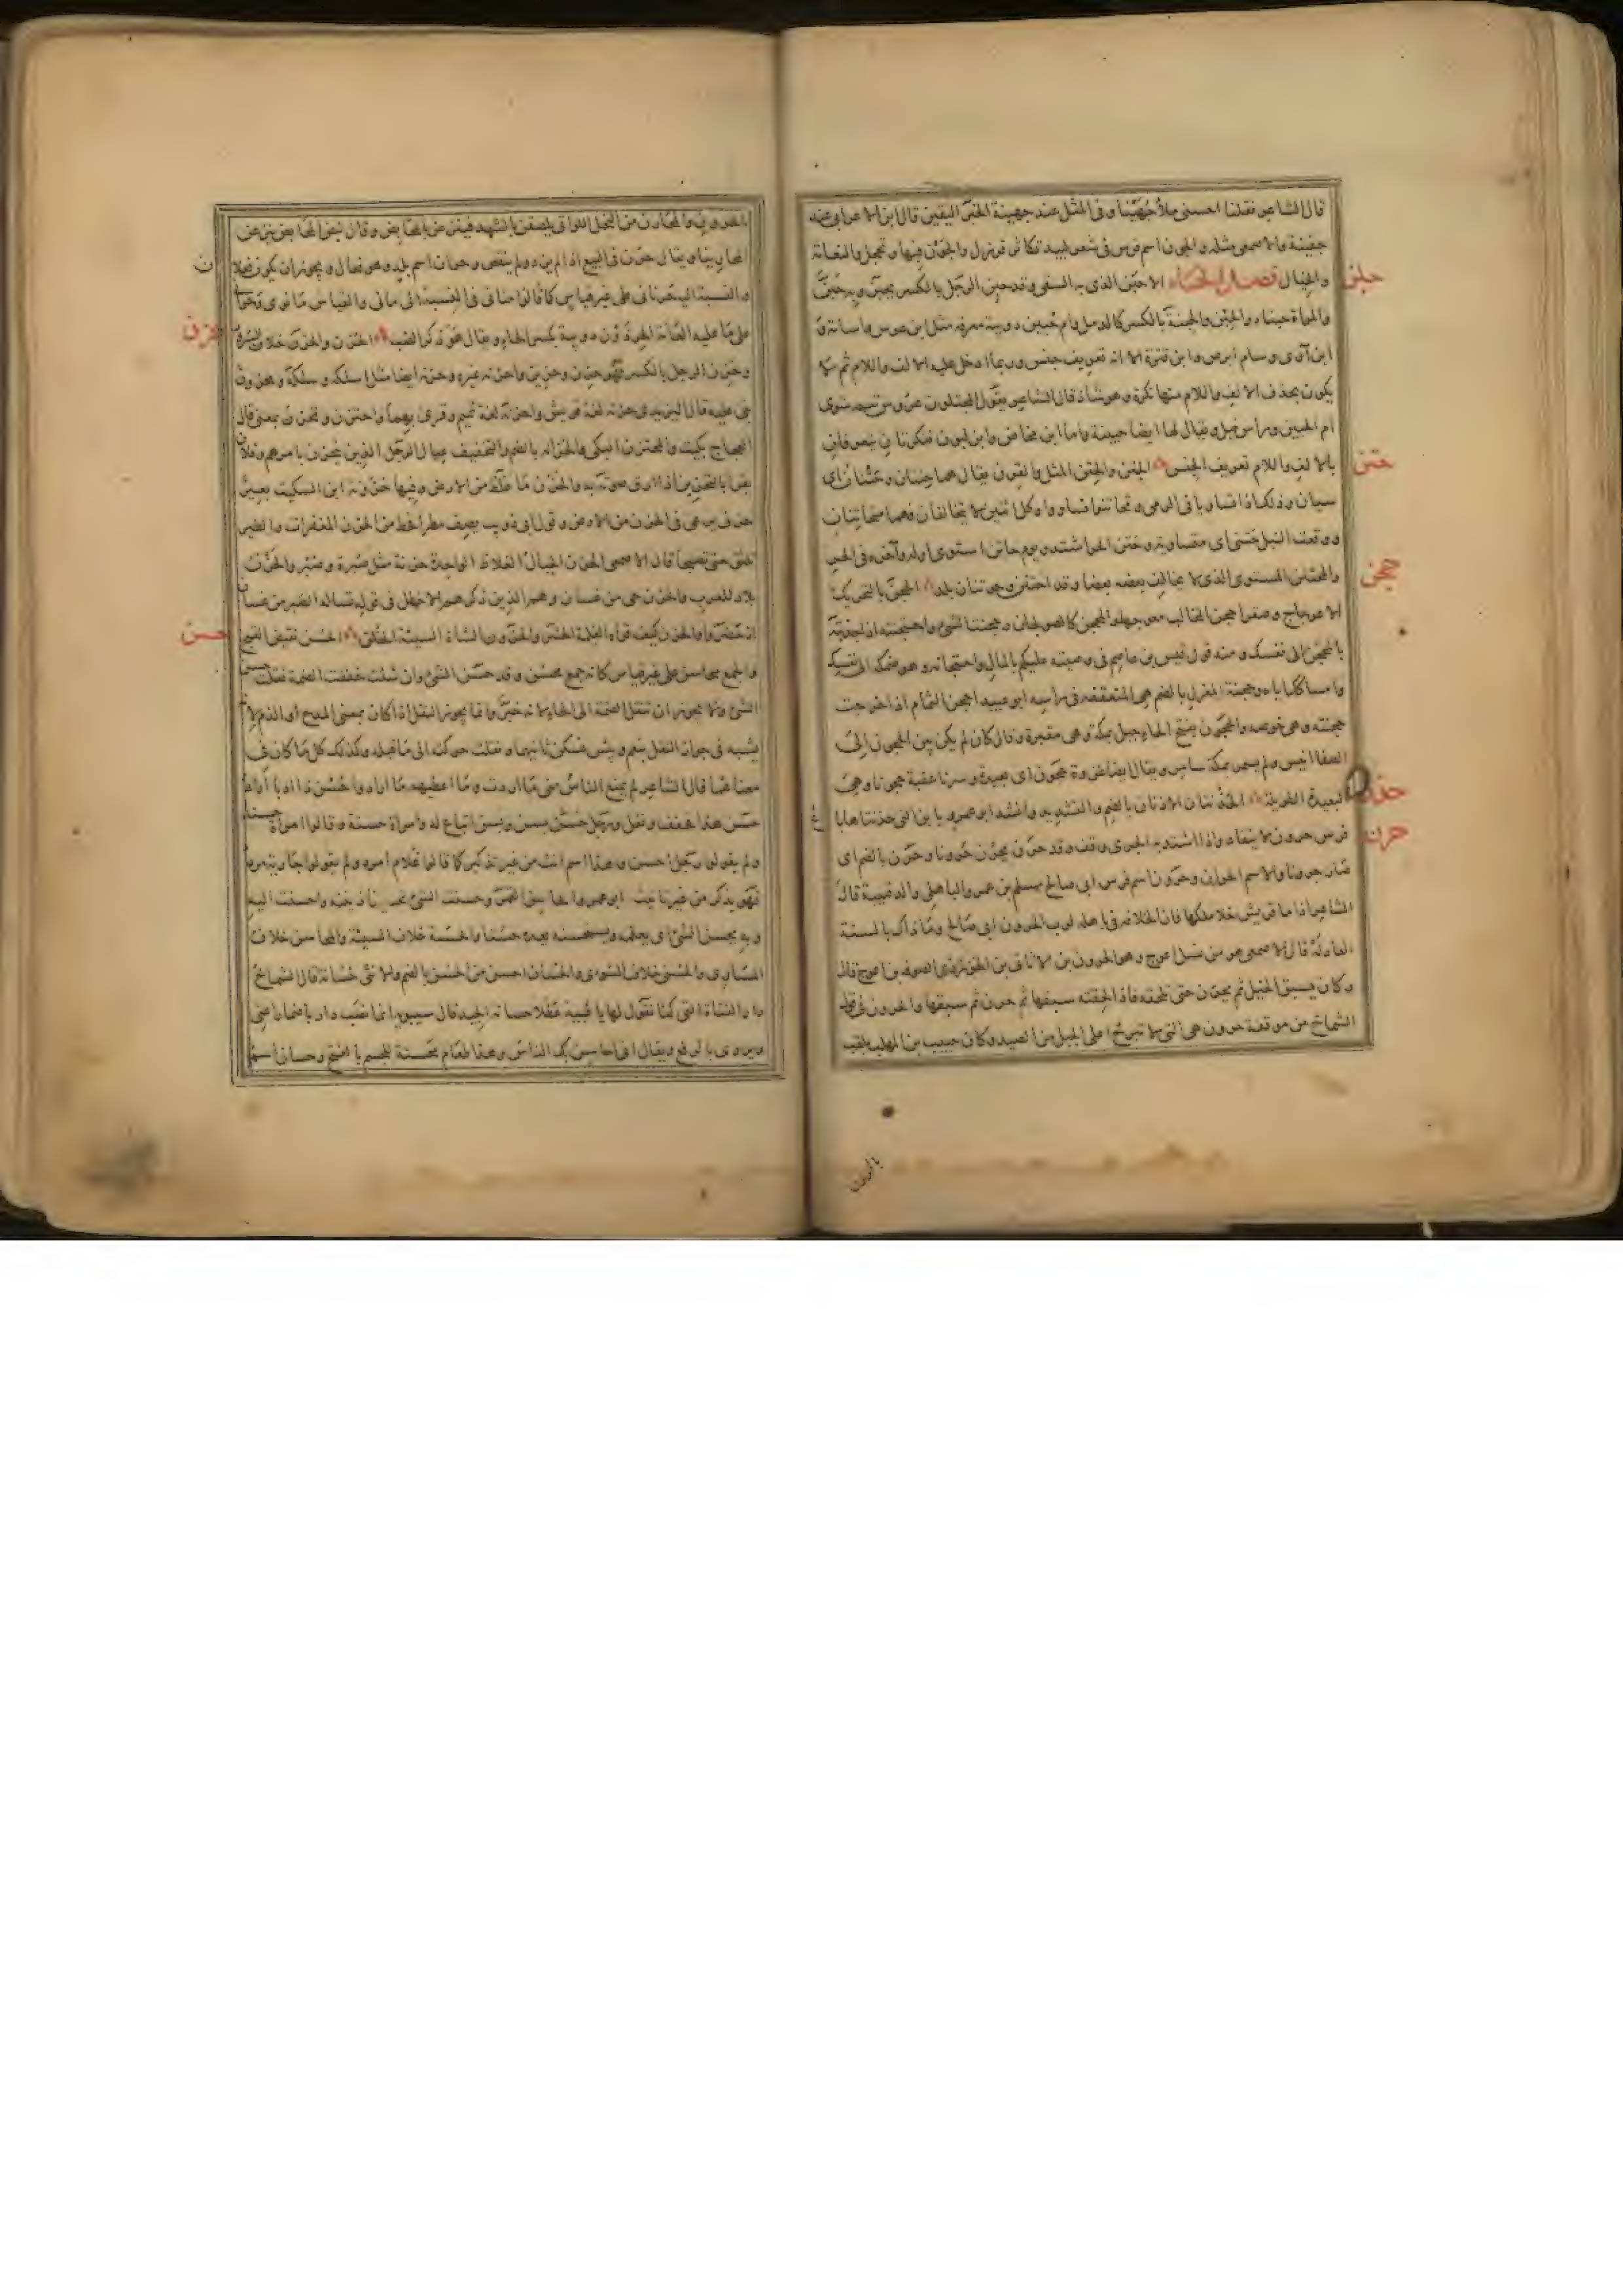 قال الشاعر فقلنا احسنى ملأ جُهَيْنا وفى المثل عند جهينة الخبر اليقين قال ابن الاعرابى عند
جفينة والاصمعى مثله والجون اسم فرس فى شعر لبيد تكاثر قرزل والجون فيها وتحجل والنعامة
والخبال فصل الحاء الاحبن الذى به السقى وقد حبن الرجل بالكسر يحبن وبه حبن
حبن
والمراة حبناء والحبن والحبنة بالكسر كالدمل وام حبين دويبة معرفة مثل ابن عرس واسامة و
ابن آوى وسام ابرص وابن قترة الا انه تعريف جنس وربما ادخل عليه الالف واللام ثم لا
يكون بحذف الالف واللام منها نكرة وهو شاذ قال الشاعر يقول المجتلون عروس تيم سوى
ام الحبين وراس فيل ويقال لها ايضا حبينة واما ابن مخاض وابن لبون فنكرتان يتعرفان
بالالف واللام تعريف الجنس الحتن والحتن المثل والقرن يقال هما حتنان وحتنان اى
حتن
سيان وذلك اذا تساويا فى الرمى وتحاتنوا تساووا وكل اثنين لا يتخالفان فهما متحاتنان
ووقعت النبل حتنى اى متساوية وحتن الحر اشتد ويوم حاتن استوى اوله وآخره فى الحر
والمحتتن المستوى الذى لا يخالف بعضه بعضا وقد احتتن وحوتنان بلد الحجن بالتحريك
حجن
الاعوجاج وصقر احجن المخالب معوجها والمحجن كالصولجان وحجنت الشئ واحتجنته اذا جذبته
بالمحجن الى نفسك ومنه قول قيس بن عاصم فى وصيته عليكم بالمال واحتجانه وهو ضمكه الى نفسك
وامساكك اياه وحجنة المغزل بالضم هى المتعقفة فى راسه ابو عبيد احجن الثمام اذا خرجت
حجنته وهى خوصه والحجون بفتح الحاء جبل بمكة وهى مقبرة وقال كان لم يكن بين الحجون الى
الصفا انيس ولم يسمر بمكة سامر ويقال ايضا غزوة حجون اى بعيدة وسرنا عقبة حجونا وهى
البعيدة الطويلة الحذنتان الاذنان بالضم والتشديد وانشد ابو عمرو يا بن التى حذنتاها باع
حذن
فرس حرون لا ينقاد واذا اشتد به الجرى وقف وقد حرن يحرن حرونا وحرن بالضم اى
حرن
صار حرونا والاسم الحران وحرون اسم فرس ابى صالح مسلم بن عمرو الباهلى والد قتيبة قال
الشاعر اذا ما قريش خلا ملكها فان الخلافة فى باهله لرب الحرون ابى صالح وما ذاك بالسنة
العادله قال الاصمعى هو من نسل اعوج وهو الحرون بن الاثاثى بن الخزز بن ذى الصوفة بن اعوج قال
وكان يسبق الخيل ثم يحرن حتى تلحقه فاذا لحقته سبقها ثم حرن ثم سبقها والحرون فى قول
الشماخ من موقفة حرون هى التى لا تبرح اعلى الجبل من الصيد وكان حبيب بن المهلب يلقب
بالحرون
بالحرون والمحارن من النحل اللواتى يلصقن بالشهد فينزعن بالمحابض وقال
المحارينا ويقال حرن فى البيع اذا لم يزد ولم ينقص وحران اسم بلد وهو فعال ويجوز ان يكون فعلا
ن
والنسبة اليه حرنانى على غير قياس كما قالوا منانى فى النسبة الى مانى والقياس مانوى وحرانى
على ما عليه العامة الحرذون دويبة بكسر الحاء ويقال هو ذكر الضب الحزن والحزن خلاف السرور
حزن
وحزن الرجل بالكسر فهو حزن وحزين واحزنه غيره وحزنه ايضا مثل اسلكه وسلكه ومحزون
بنى عليه قال اليزيدى حزنه لغة قريش واحزنه لغة تميم وقرئ بهما واحتزن وتحزن بمعنى قال
العجاج بكيت والمحتزن البكى والحزانة بالضم والتخفيف عيال الرجل الذين يتحزن بامرهم وفلان
يقرا بالتحزين اذا ارق صوته به والحزن ما غلظ من الارض وفيها حزونة ابن السكيت بعير
حزنى يرعى فى الحزن من الارض وقول ابى ذويب يصف مطرا فحط من الحزن المغفرات والطير
تلثق حتى تصيحا قال الاصمعى الحزن الجبال الغلاظ الواحدة حزنة مثل صبرة وصبر والحزن
بلاد للعرب والحزن حى من غسان وهم الذين ذكرهم الاخطل فى قوله تساله الصبر من غسان
اذ حضروا والحزن كيف قراه الغلمة الجشر والحزون الشاة السيئة الخلق الحسن نقيض القبح
حسن
والجمع محاسن على غير قياس كانه جمع محسن وقد حسن الشئ وان شئت خففت الضمة فقلت حسن
الشئ ولا يجوز ان تنقل الضمة الى الحاء لانه خبر وانما يجوز النقل اذا كان بمعنى المدح او الذم لانه
يشبه فى جواز النقل بنعم وبئس فسكن ثانيهما ونقلت حركته الى ما قبله وكذلك كل ما كان فى
معناهما قال الشاعر لم يمنع الناس منى ما اردت وما اعطيهم ما ارادوا حسن ذا ادبا اراد
حسن هذا فخفف ونقل ورجل حسن بسن وبسن اتباع له وامراة حسنة وقالوا امراة حسناء
ولم يقولوا رجل احسن وهذا اسم انث من غير تذكير كما قالوا غلام امرد ولم يقولوا جارية مرداء
فهو يذكر من غير تانيث ابو عمرو الحاسن القمر وحسنت الشئ تحسينا زينته واحسنت اليه
وبه يحسن الشئ اى يعلمه ويستحسنه يعده حسنا والحسنة خلاف السيئة والمحاسن خلاف
المساوى والحسنى خلاف السوءى والحسان احسن من الحسن بالضم والانثى حسانة قال الشماخ
دار الفتاة التى كنا نقول لها يا ظبية عطلا حسانة الجيد قال سيبويه انما نصب دار باضمار اعنى
ويروى بالرفع ويقال انى احاسن بك الناس وهذا طعام محسنة للجسم بالفتح وحسان اسم